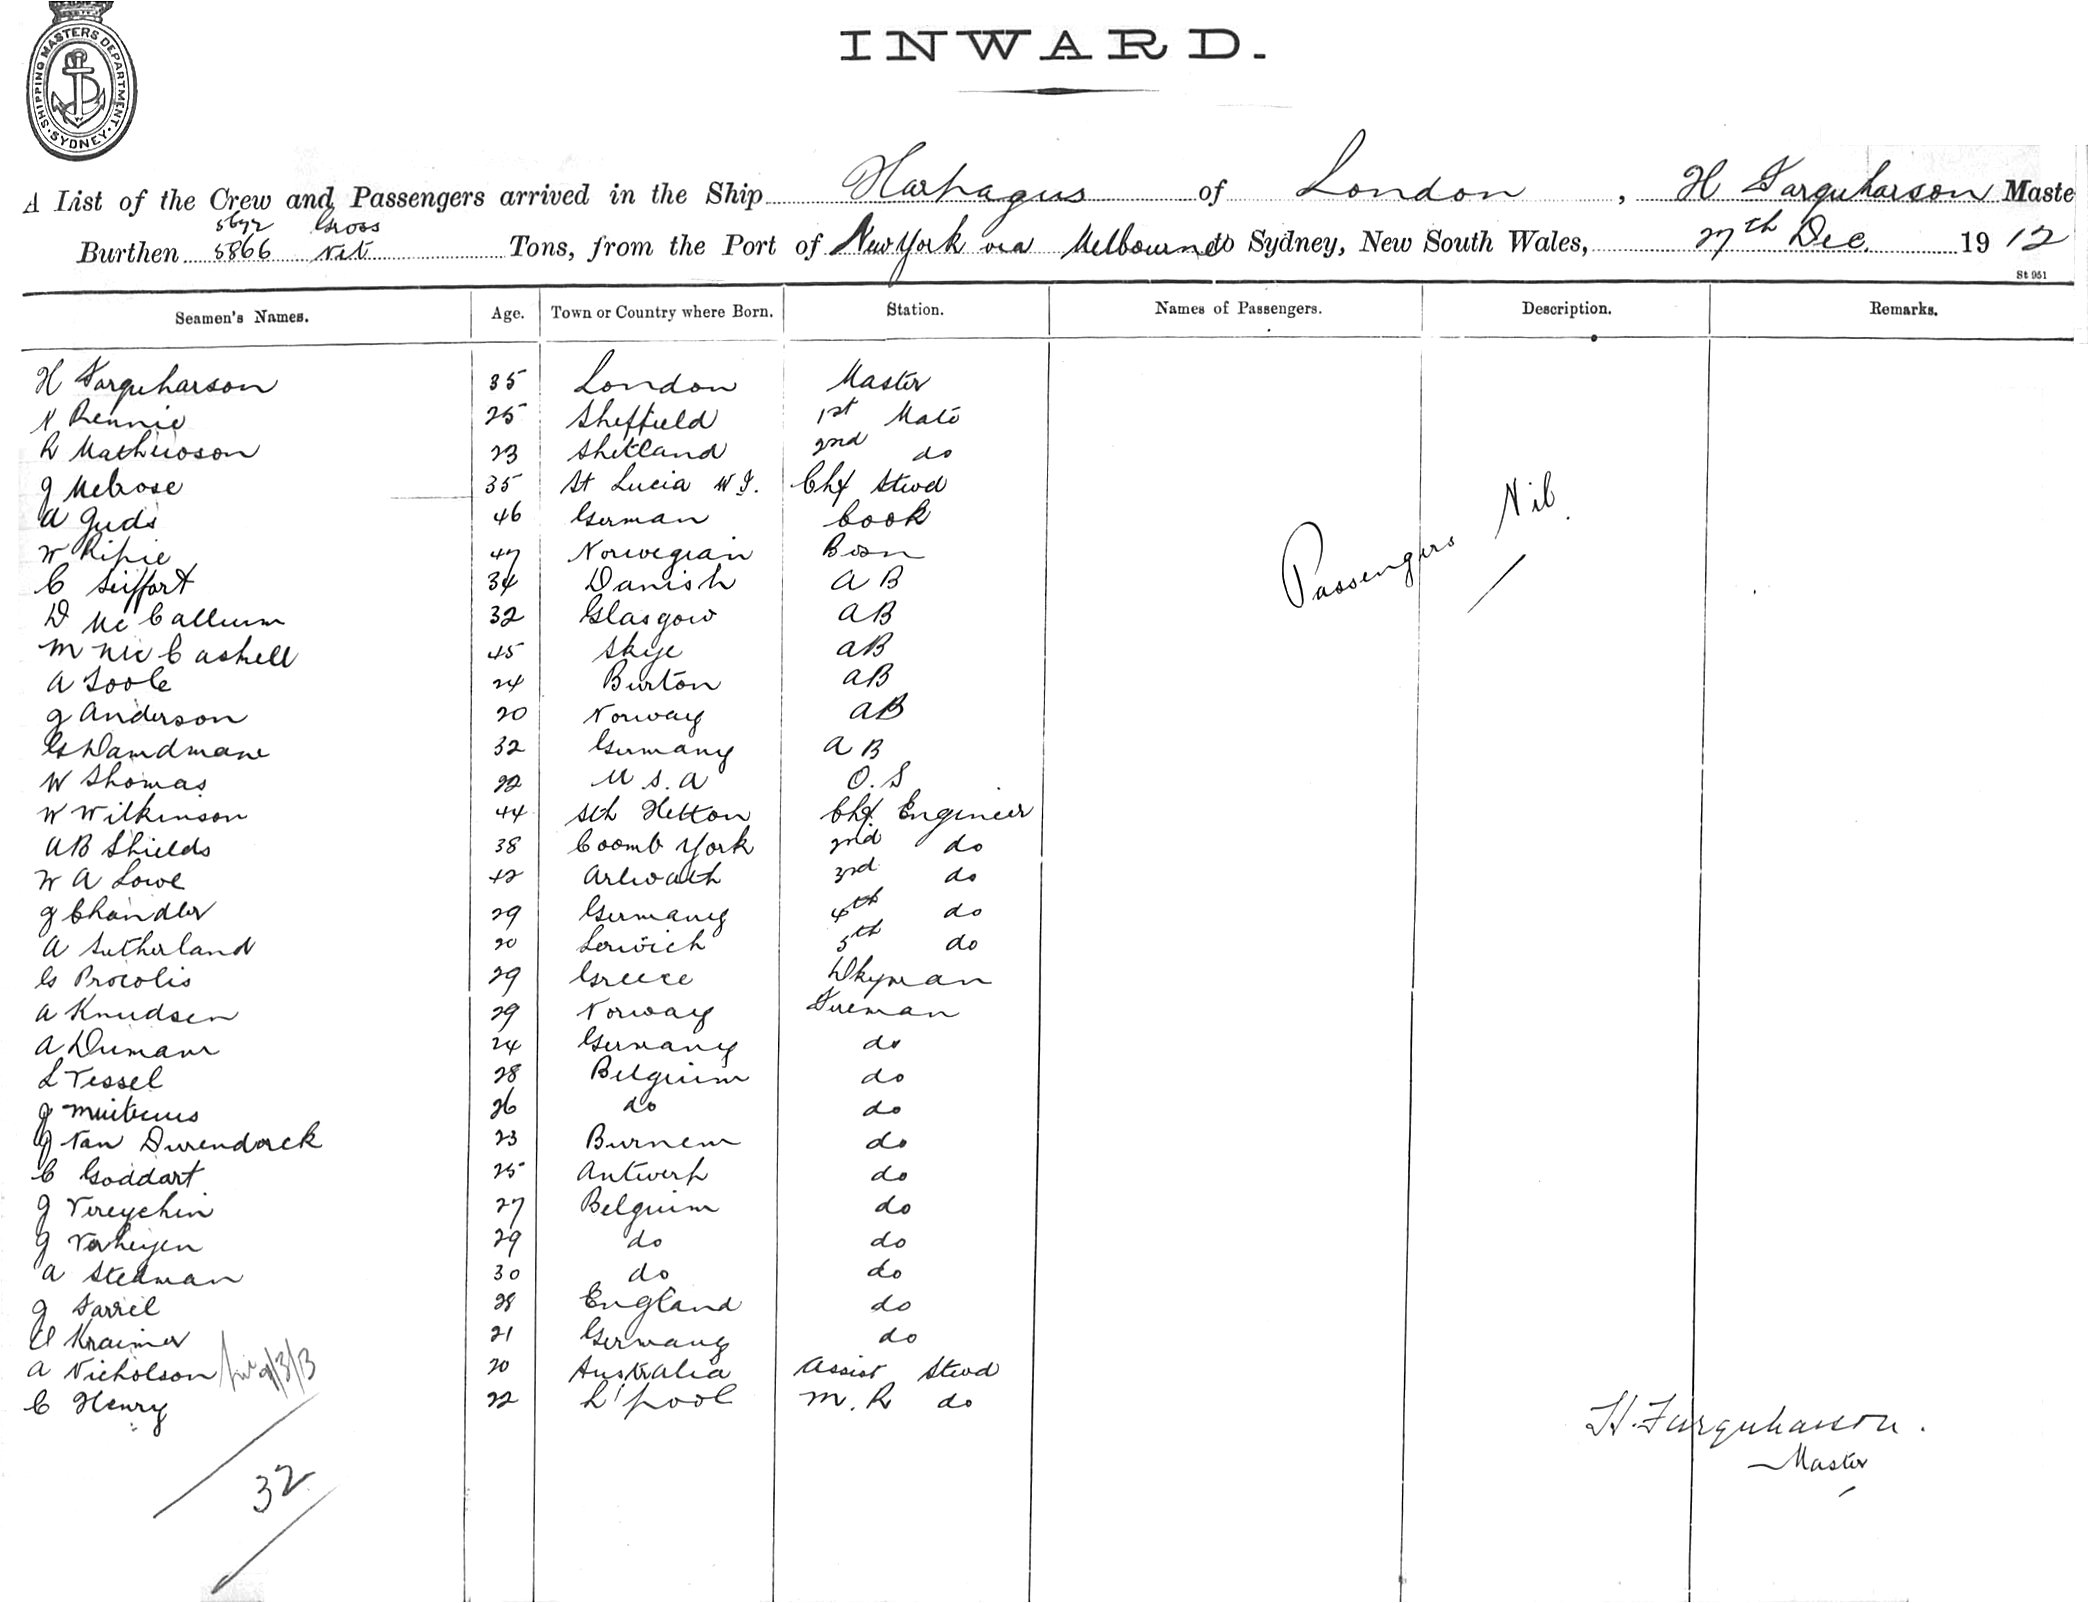 SHIPPING MASTERS DEPARTMENT. SYDNEY
INWARD.
A List of the Crew and Passengers arrived in the Ship Harpagus of London, H Farquharson Maste
Gross
Burthen 5866 Net Tons, from the Port of New York via Melbourne to Sydney, New South Wales, 27th Dec. 1912
St 951
Seamen's Names. Age. Town or Country where Born. Station. Names of Passengers. Description. Remarks.
H Farquharson 35 London Master
N Rennie 25 Sheffield 1st Mate
R Mathewson 23 Shetland 2nd do
J Melrose 35 St Lucia W I. Chf Stwd
A Juds 46 German Cook
W Ripie 47 Norwegian Bosn
C Seiffort 34 Danish A B
D McCallum 32 Glasgow A B
M McCaskell 45 Skye A B
A Toole 24 Burton A B
J Anderson 20 Norway A B
G Damdmane 32 Germany A B
W Thomas 22 U. S. A O. S
W Wilkinson 44 Sth Hetton Chf Engineer
A B Shields 38 Coomb York 2nd do
W A Lowe 42 3rd do
J Chandler 29 Germany 4th do
A Sutherland 20 Lerwick 5th do
G Procolis 29 Greece Dkyman
A Knudsen 29 Norway Fireman
A Dumann 24 Germany do
L Vessel 28 Belgium do
J 26 do do
J Van Durendorck 23 Burnem do
C Goddart 25 Antwerp do
J Vereychin 27 Belgium do
J Verheyen 29 do do
A Stedman 30 do do
J Farrel 28 England do
Kraimer 21 Germany do
A Nicholson 9/3/3 20 Australia Assist Stwd
C Henry 22 L'pool M. R do
Passengers Nil.
32
H. Farquharson.
Master